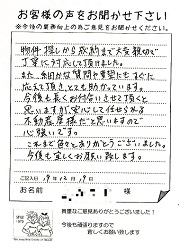 お客様の声をお聞かせ下さい
※今後の業務向上の為ご意見をお聞かせください。
物件探しから成約まで大変親切で
丁寧に対応して頂きました。
また、細かな質問や要望にもすぐに
応えて頂きとても助かっています。
今後も長くお付合いさせて頂くと
思いますが、安心して任せられる
不動産屋様だと思いますので
心強いです。
これまで色々とありがとうございました。
今後も宜しくお願い致します。
ご記入日 19年12月19日
お名前 様
貴重なご意見ありがとうございました！
今後も頑張りますので
宜しくお願い致します